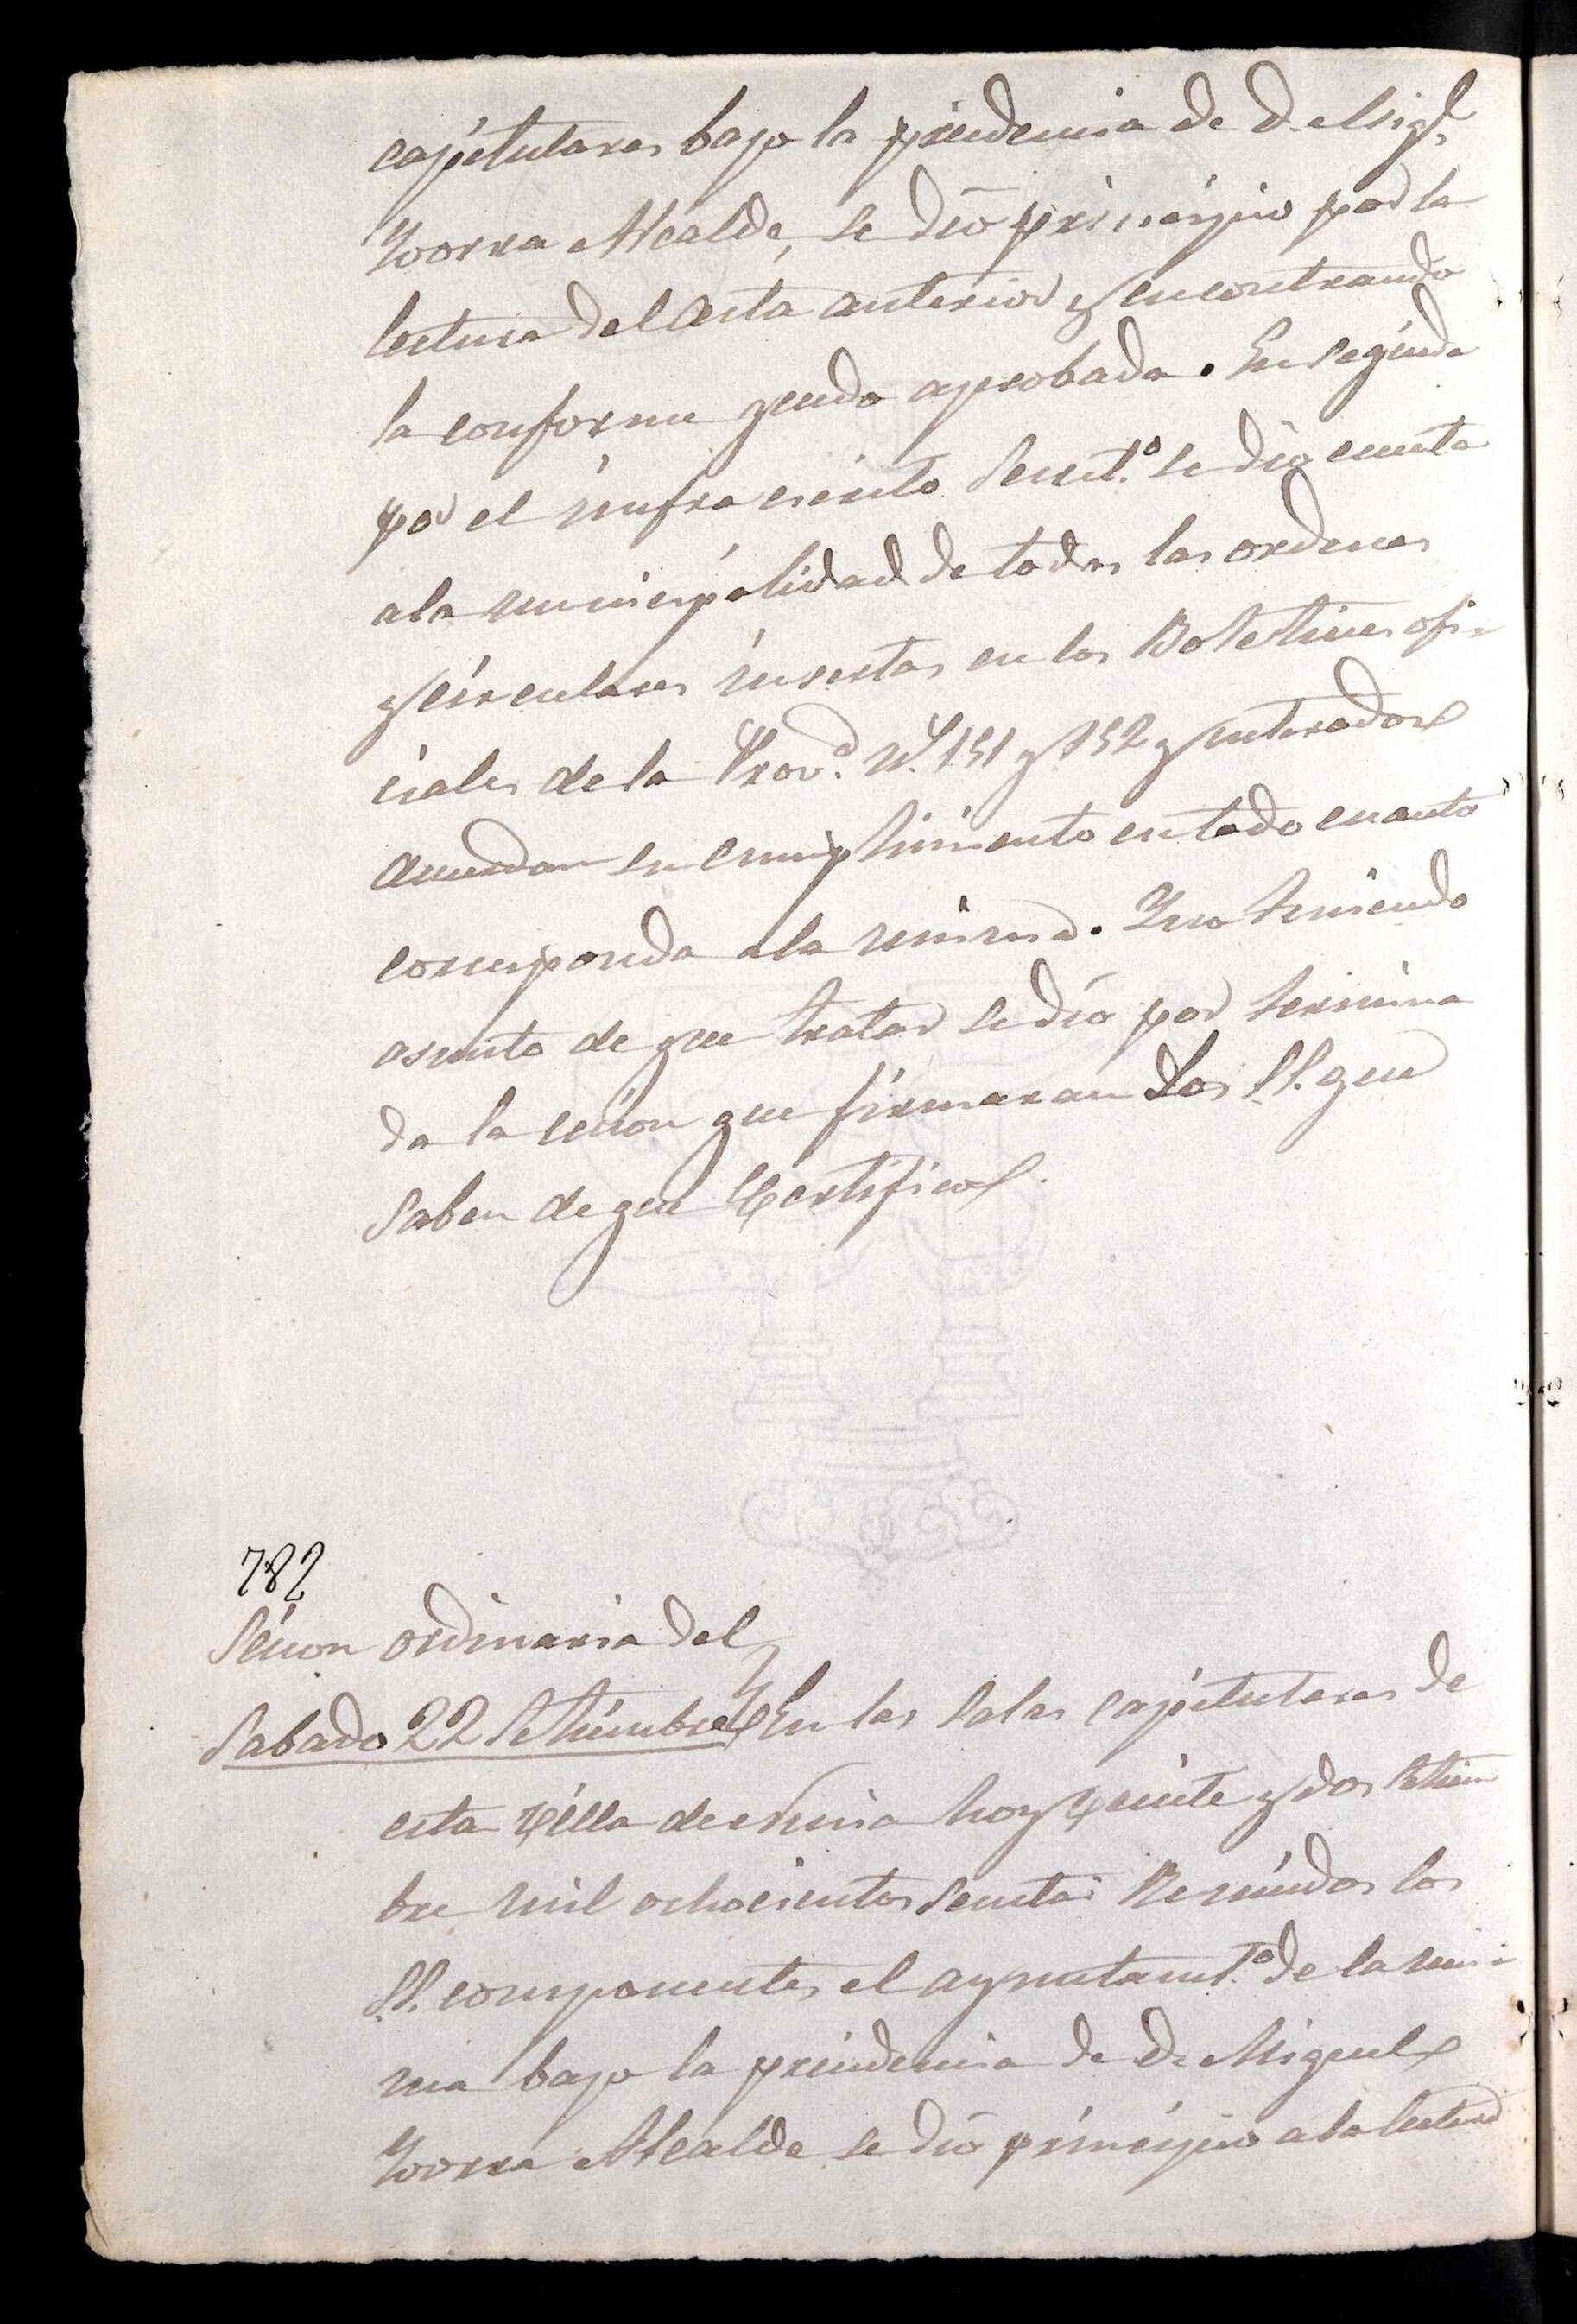 capitulares bajo la precidencia de D. Migl.
Yvorra Alcalde, se dió principio por la
lectura del acta anterior y encontrando
la conforme quedo aprobada. En seguida
por el infraescrito Secret.º se dio cuenta
a la municipalidad de todas las ordenes
y circulares insertas en los Boletines ofi-
ciales de la Prov.ª N. 151 y 152 y enterados
acuerdan su cumplimiento en todo cuanto
corresponda a la misma. Y no teniendo
asunto de que tratar se dió por termina
da la cecion que firmaran los SS. que
saben de que Certifico.
782
Secion ordinaria del
Sabado 22 Setiembre En las Salas capitulares de
esta Villa de Nucia hoy veinte y dos Setiem
bre mil ochocientos senta: Reunidos los
SS. componentes el ayuntamt.º de la mis-
ma bajo la precidencia de D. Miguel
Yvorra Alcalde se dió principio a la lectura